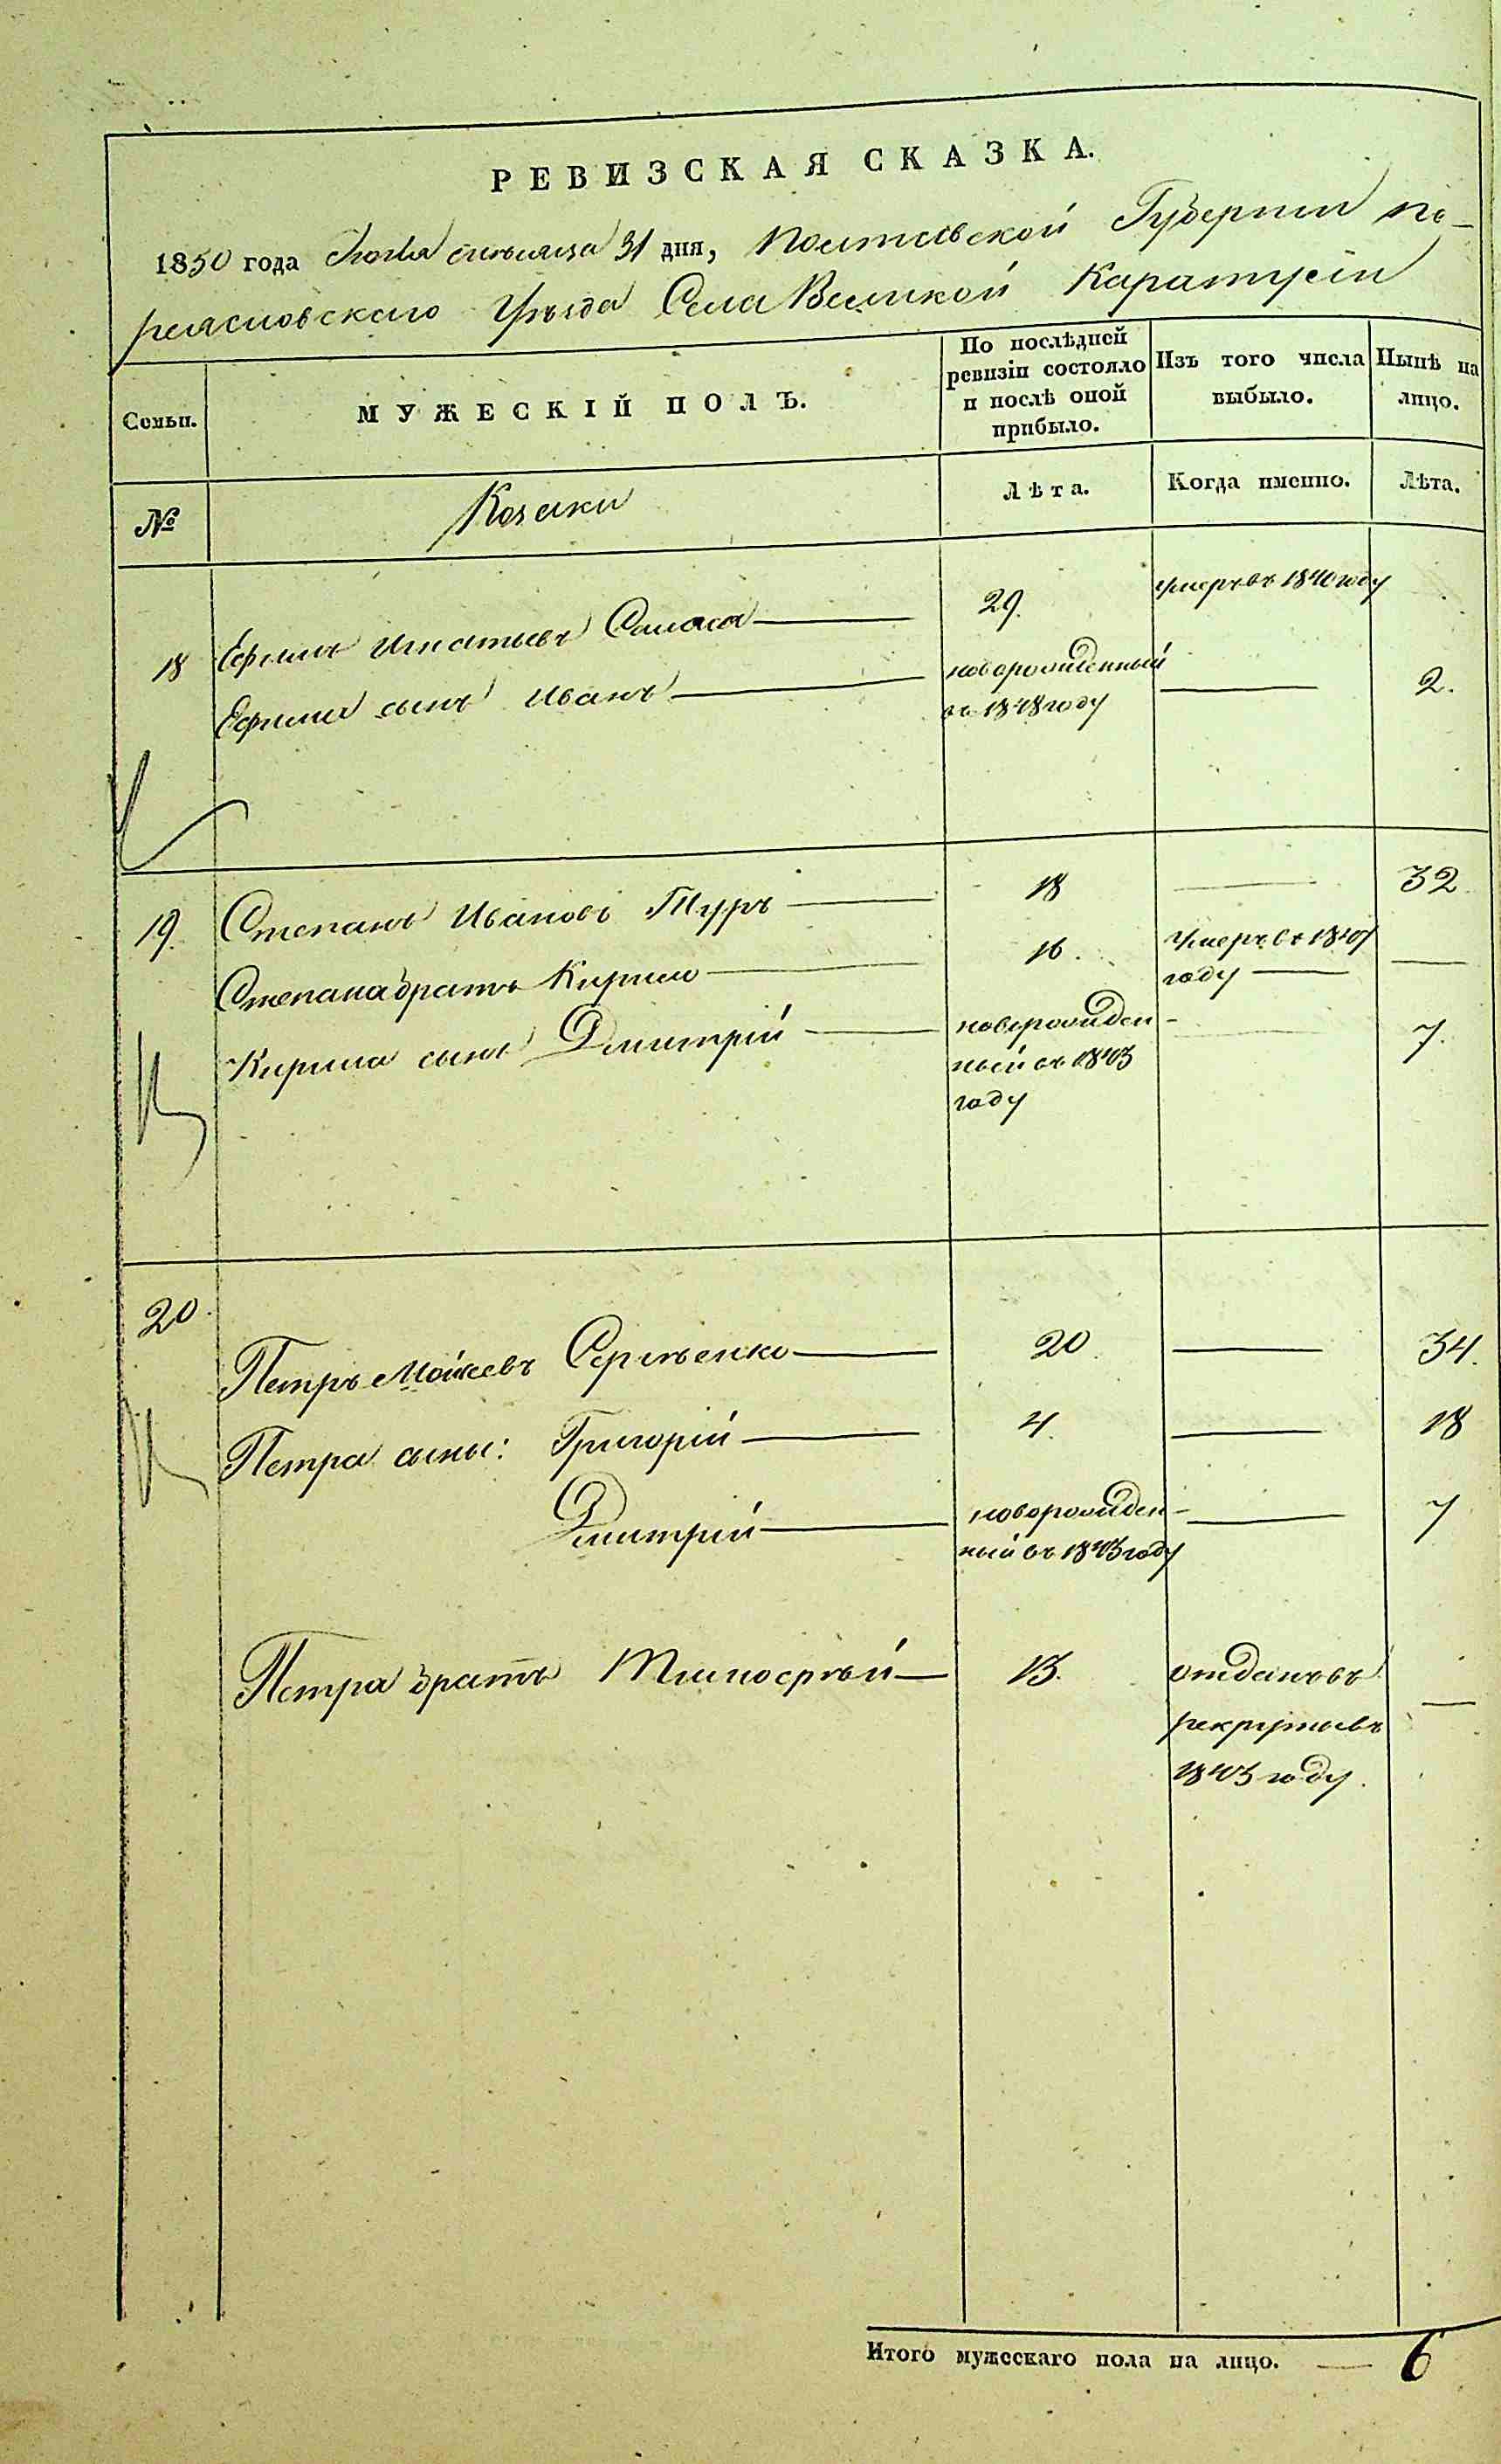 РЕВИЗСКАЯ СКАЗКА.
1850 года Июля мѣсяца 31 дня, Полтавской Губерніи Пе-
реясловскаго Уѣзда Села Великой Каратули
Семьи.
МУЖЕСКІЙ ПОЛЪ.
По послѣдней
ревизіи состояло
и послѣ оной
прибыло.
Изъ того числа
выбыло.
Нынѣ на
лицо.
№
Козаки
Лѣта.
Когда именно.
Лѣта.
18 Ефимъ Игнатьевъ 29. умеръ въ 1840 году
Ефима сынъ Иванъ новорожденный
въ 1848 году 2.
19. Степанъ Ивановъ Туръ 18 32
Степана братъ Кирило 16. умеръ въ 1847
году
Кирила сынъ Дмитрій новорожден-
ный въ 1843
году 7.
20. Петръ Мойсеевъ Сергѣенко 20. 34.
Петра сыны: Григорій 4. 18
Дмитрій новорожден-
ный въ 1843 году 7
Петра братъ Тимофѣй 13. отданъ въ
рекруты въ
1843 году.
Итого мужескаго пола на лицо. 6